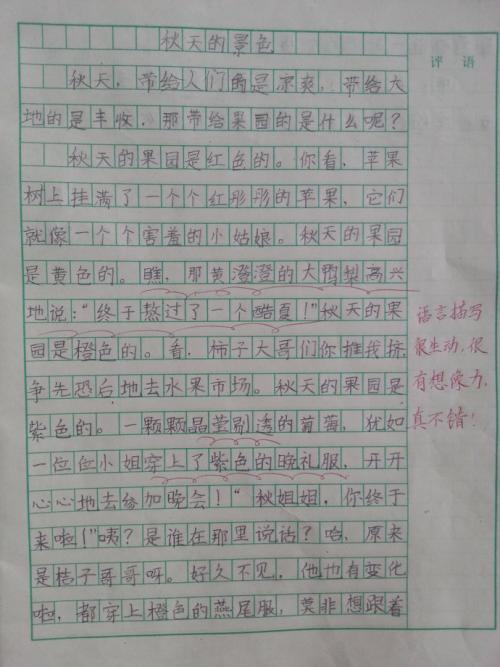 秋天的景色
评语
秋天，带给人们的是凉爽，带给大
地的是丰收，那带给果园的是什么呢？
秋天的果园是红色的。你看，苹果
树上挂满了一个个红彤彤的苹果，它们
就像一个个害羞的小姑娘。秋天的果园
是黄色的。瞧，那黄澄澄的大鸭梨高兴
地说：“终于熬过了一个酷夏！”秋天的果
园是橙色的。看，柿子大哥们你推我挤，
争先恐后地去水果市场。秋天的果园是
紫色的。一颗颗晶莹剔透的葡萄，犹如
一位位小姐穿上了紫色的晚礼服，开开
心心地去参加晚会！“秋姐姐，你终于
来啦！”咦？是谁在那里说话？哈，原来
是桔子哥哥呀。好久不见，他也有变化
啦，都穿上橙色的燕尾服，莫非想跟着
语言描写
很生动，很
有想像力，
真不错！